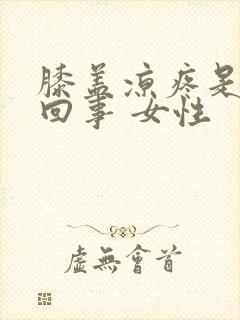 膝盖凉疼是
回事 女性
虚無會首